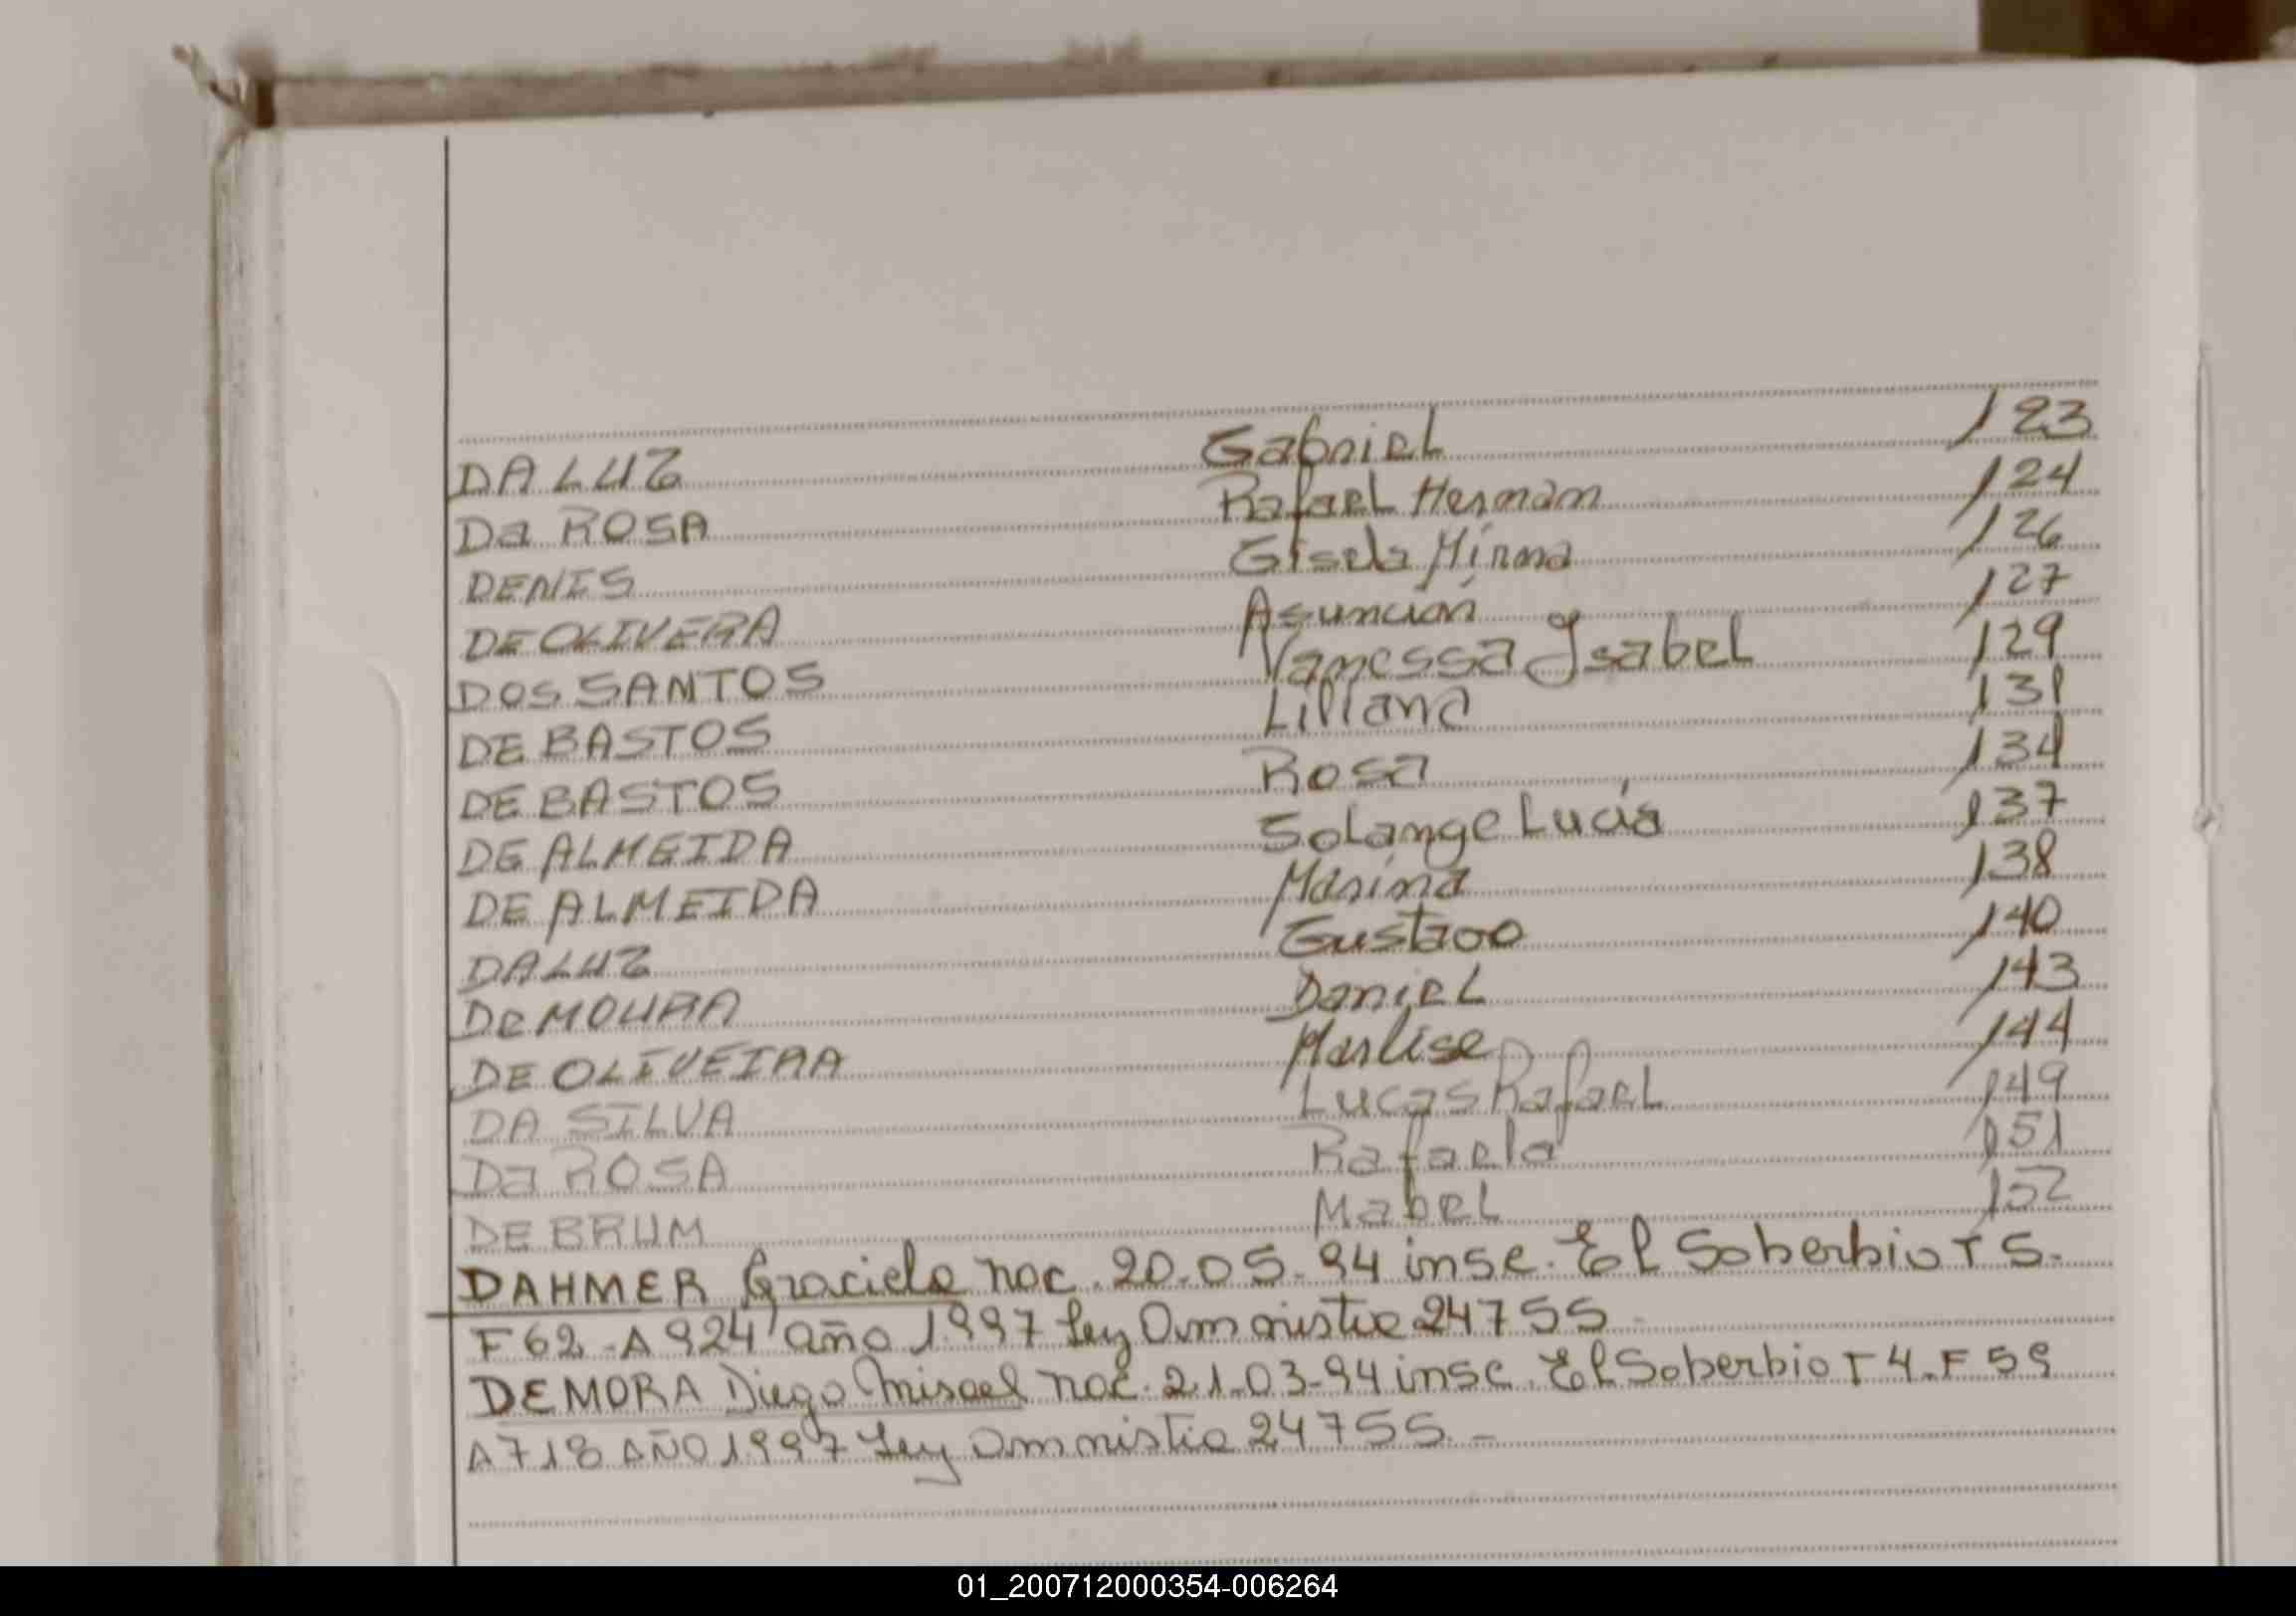 DA LUZ Gabriel 123
Da ROSA Rafael Hernan 124
DENIS Gisela Mirna 126
DE OLIVERA Asunción 127
DOS SANTOS Vanessa Ysabel 129
DE BASTOS Liliana 131
DE BASTOS Rosa 134
DE ALMEIDA Solange Lucía 137
DE ALMEIDA Marina 138
DA LUZ Gustavo 140
De MOURA Daniel 143
DE OLIVEIRA Marlise 144
DA SILVA Lucas Rafael 149
Da ROSA Rafaela 151
DE BRUM Mabel 152
DAHMER Graciela nac. 20-05-94 insc. El Soberbio T 5-
F 62-A 924 año 1997 Ley Amnistia 24755
DEMORA Diego Misael nac. 21-03-94 insc. El Soberbio T 4-F 59
A 718 AÑO 1997 Ley Amnistia 24755-
01_200712000354-006264